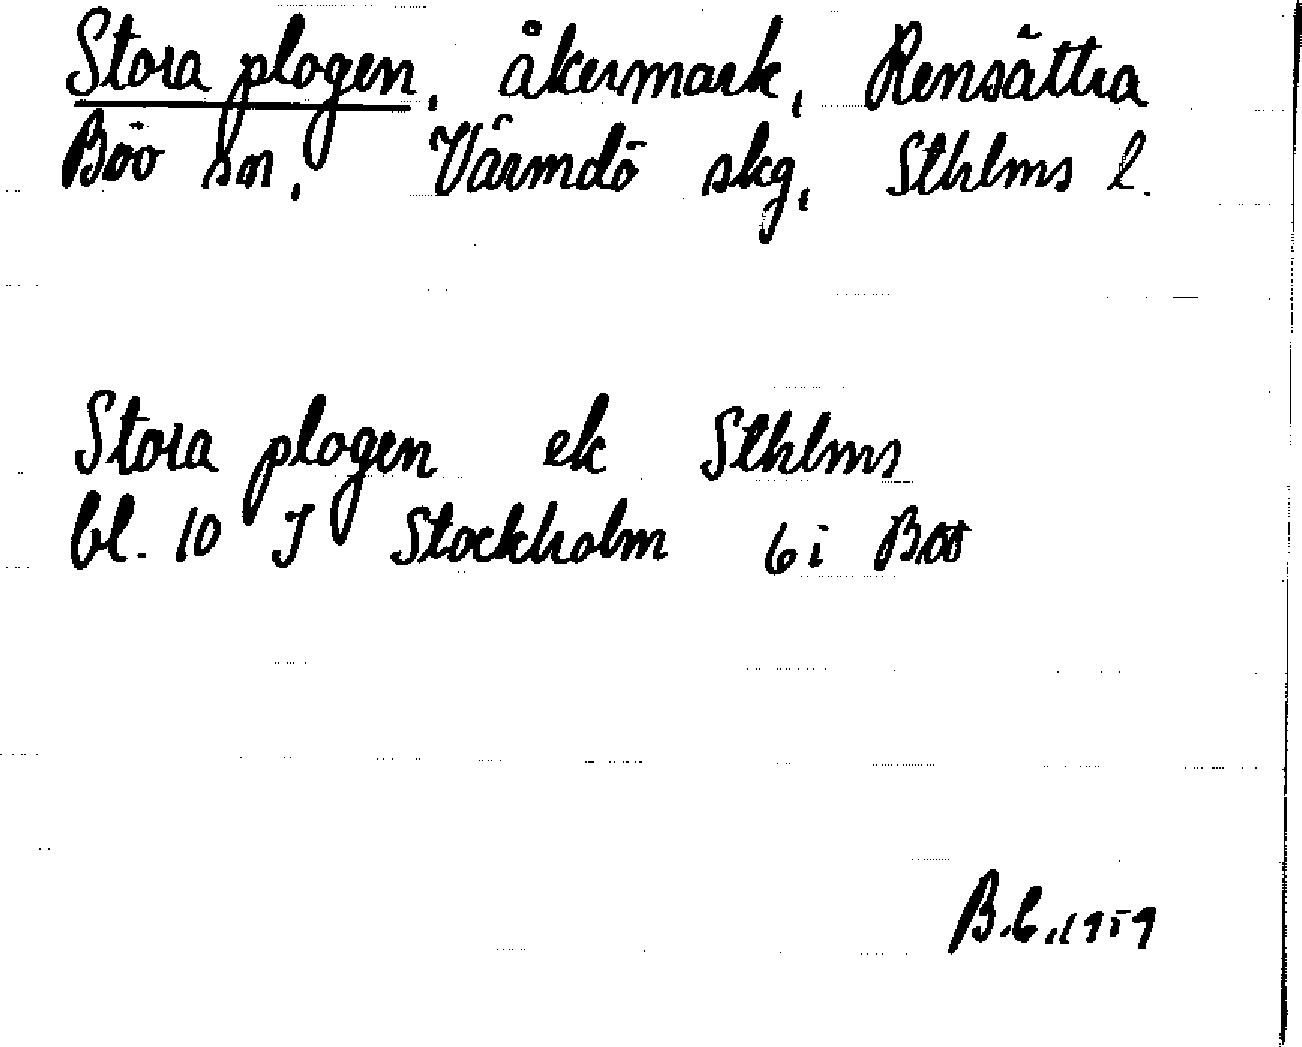 Stora plogen, åkermark, Rensättra
Böö sn, Värmdö skg, Sthlms l.
Stora plogen ek Sthlms
bl. 10 J Stockholm 6 i Boo